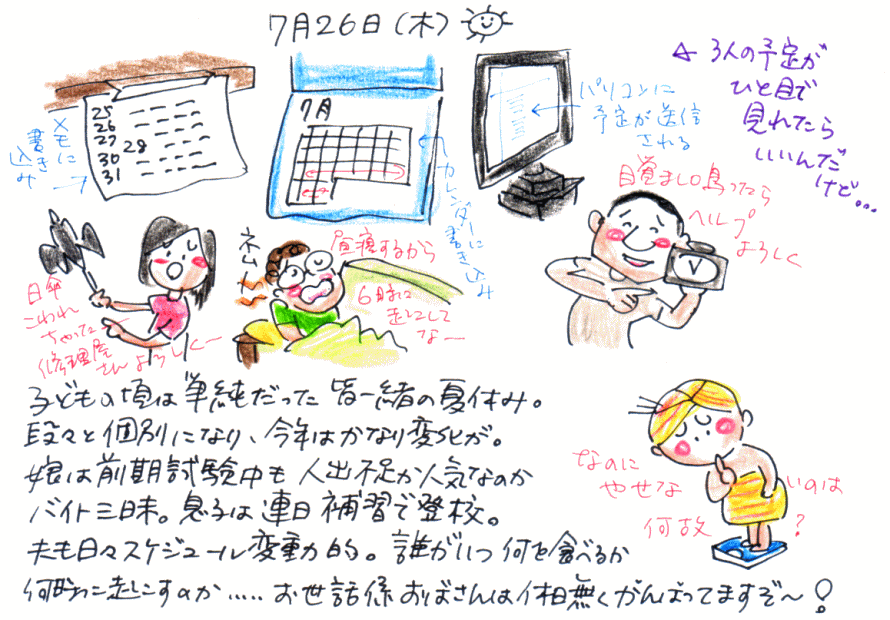 7月26日(木)
25
26
27
28
30
31
メモに
書き
込み
7月
カレンダーに書き込み
パソコンに
予定が送信
される
← 3人の予定が
ひと目で
見れたら
いいんだ
けど...
日傘
こわれ
ちゃったー
修理屋
さんよろしくー
ネムー
昼寝するから
6時に
起こして
なー
目覚まし鳥ったら
ヘルプ
よろしく
子どもの頃は単純だった皆一緒の夏休み。
段々と個別になり、今年はかなり変化が。
娘は前期試験中も人出不足か人気なのか
バイト三昧。息子は連日補習で登校。
夫も日々スケジュール変動的。誰がいつ何を食べるか
何時に起こすのか.....お世話係おばさんは休無くがんばってますぞ〜!
なのに
やせな
いのは
何故?